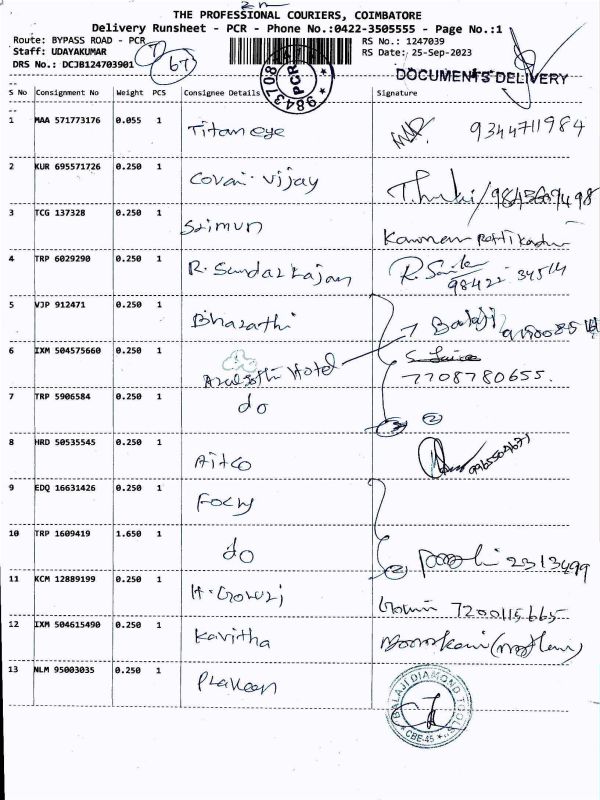 THE PROFESSIONAL COURIERS, COIMBATORE
Delivery Runsheet - PCR - Phone No.:0422-3505555 - Page No.:1
Route: BYPASS ROAD - PCR RS No.: 1247039
Staff: UDAYAKUMAR 7 RS Date: 25-Sep-2023
DRS No.: DCJB124703901 67 PCR 9843708 DOCUMENTS DELIVERY
S No Consignment No Weight PCS Consignee Details Signature
1 MAA 571773176 0.055 1 Titan eye 9344711984
2 KUR 695571726 0.250 1 Covai. Vijay
3 TCG 137328 0.250 1
4 TRP 6029290 0.250 1 R. Sundarrajan 98422 34514
5 VJP 912471 0.250 1 Bharathi Balaji
6 IXM 504575660 0.250 1 Hotel 7708780655.
7 TRP 5906584 0.250 1 do 2
8 HRD 50535545 0.250 1
9 EDQ 16631426 0.250 1
10 TRP 1609419 1.650 1 do 2 2313499
11 KCM 12889199 0.250 1 7200115665
12 IXM 504615490 0.250 1 Kavitha
13 NLM 95003035 0.250 1 Praveen
BALAJI DIAMOND TOOLS
* CBE-45 *